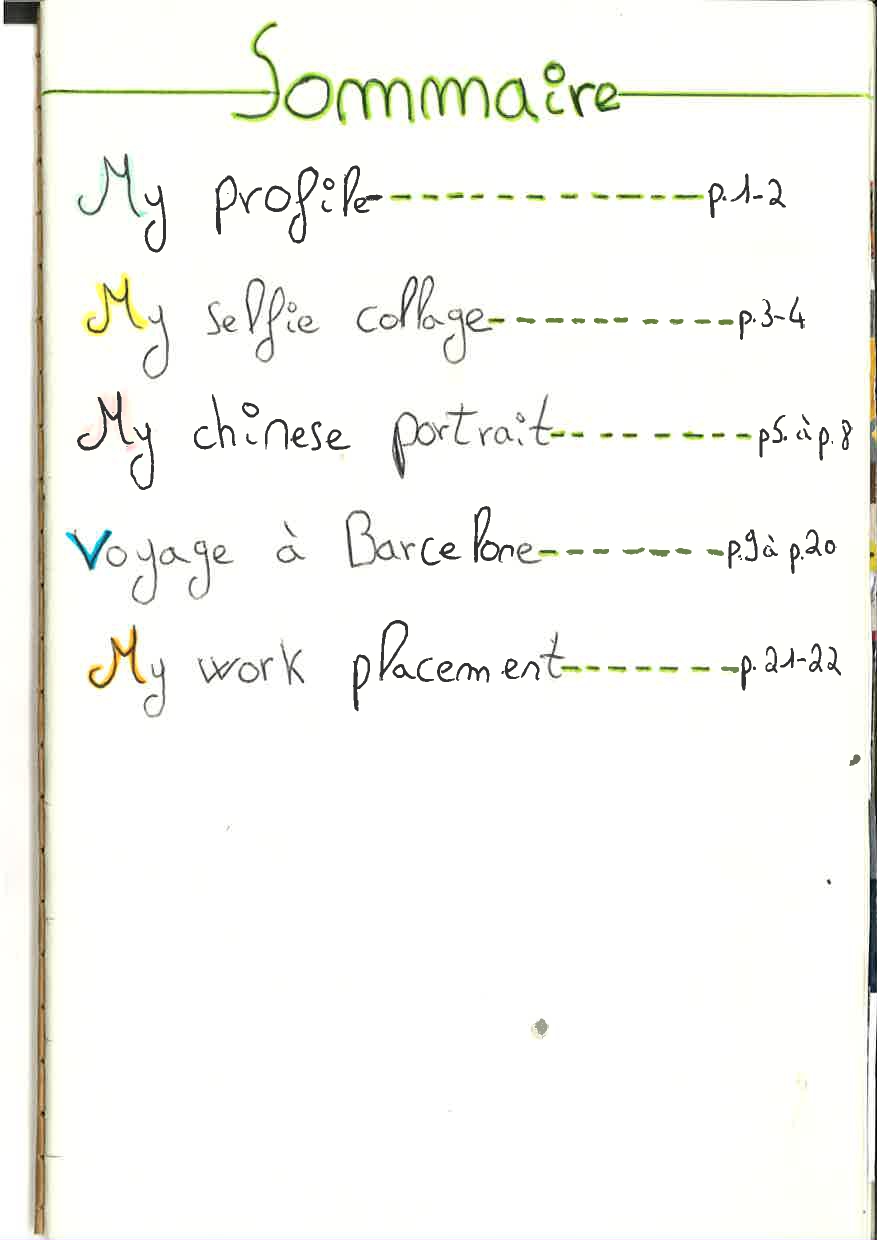 Sommaire
My profile----------- p.1-2
My selfie collage--------- p.3-4
My chinese portrait-------- p5. à p.8
Voyage à Barcelone------- p.9 à p.20
My work placement------- p.21-22